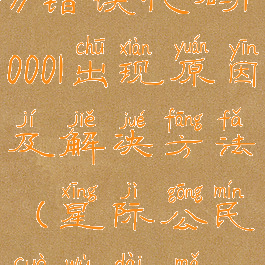 错误代码
chū xiàn yuán yīn
0001出现原因
jí jiě jué fāng fǎ
及解决方法
xīng jì gōng mín
(星际公民
cuò wù dài mǎ